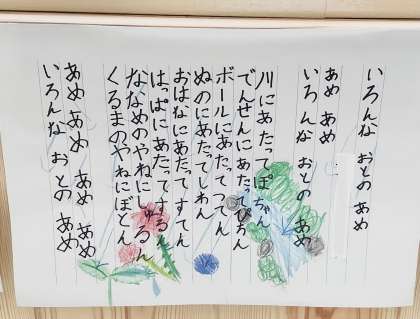 いろんな おとの あめ
あめ あめ
いろんな おとの あめ
川にあたってぽちゃん
でんせんにあたってぴちん
ボールにあたってつてん
ぬのにあたってしわん
おはなにあたってすてん
はっぱにあたってするん
ななめのやねにしゅるん
くるまのやねにぼとん
あめ あめ あめ あめ
いろんな おとの あめ